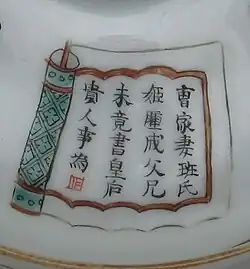 曹家妻班氏
姬成父
未竟書皇后
貴人事為